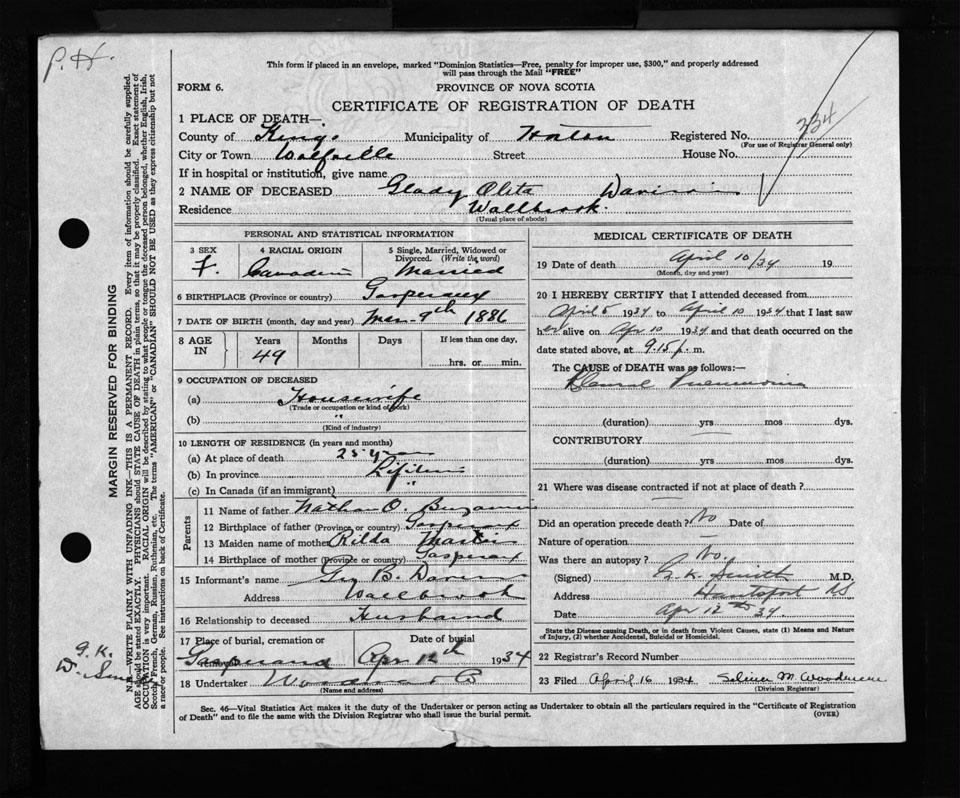 P. H.
This form if placed in an envelope, marked "Dominion Statistics—Free, penalty for improper use, $300," and properly addressed
will pass through the Mail "FREE"
FORM 6.
PROVINCE OF NOVA SCOTIA
CERTIFICATE OF REGISTRATION OF DEATH
1 PLACE OF DEATH—
County of Kings Municipality of Horton Registered No. 334
(For use of Registrar General only)
City or Town Wolfville Street House No.
If in hospital or institution, give name
2 NAME OF DECEASED Glady Oleta Davison
Residence Wallbrook.
(Usual place of abode)
PERSONAL AND STATISTICAL INFORMATION
3 SEX F.
4 RACIAL ORIGIN Canadian
5 Single, Married, Widowed or Divorced. (Write the word) Married
6 BIRTHPLACE (Province or country) Gasperaux
7 DATE OF BIRTH (month, day and year) Mar 9th 1886
8 AGE IN Years 49 Months Days If less than one day, hrs. or min.
9 OCCUPATION OF DECEASED
(a) Housewife
(Trade or occupation or kind of work)
(b) "
(Kind of industry)
10 LENGTH OF RESIDENCE (in years and months)
(a) At place of death 25 years
(b) In province Lifetime
(c) In Canada (if an immigrant) "
Parents
11 Name of father Nathan O. Benjamin
12 Birthplace of father (Province or country) Gasperaux
13 Maiden name of mother Rilda
14 Birthplace of mother (Province or country) Gasperaux
15 Informant's name Geo B. Davison
Address Wallbrook
16 Relationship to deceased Husband
17 Place of burial, cremation or
Date of burial Apr 12th 1934
18 Undertaker
(Name and address)
MEDICAL CERTIFICATE OF DEATH
19 Date of death April 10/34 19
(Month, day and year)
20 I HEREBY CERTIFY that I attended deceased from
April 5 1934 to April 10 1934 that I last saw
her alive on Apr 10 1934 and that death occurred on
date stated above, at 9.15 p. m.
The CAUSE of DEATH was as follows:—
Pneumonia
(duration) yrs mos dys.
CONTRIBUTORY
(duration) yrs mos dys.
21 Where was disease contracted if not at place of death?
Did an operation precede death? No Date of
Nature of operation
Was there an autopsy? No.
(Signed) G. K. Smith M.D.
Address Hantsport NS
Date Apr 12th 34.
State the Disease causing Death, or in death from Violent Causes, state (1) Means and Nature
of Injury, (2) whether Accidental, Suicidal or Homicidal.
22 Registrar's Record Number
23 Filed April 16 1934 M. Woodworth
(Division Registrar)
Sec. 46—Vital Statistics Act makes it the duty of the Undertaker or person acting as Undertaker to obtain all the particulars required in the "Certificate of Registration
of Death" and to file the same with the Division Registrar who shall issue the burial permit.
(OVER)
MARGIN RESERVED FOR BINDING
N.B.—WRITE PLAINLY WITH UNFADING INK—THIS IS A PERMANENT RECORD. Every item of information should be carefully supplied.
AGE should be stated EXACTLY. PHYSICIANS should STATE CAUSE OF DEATH in plain terms, so that it may be properly classified. Exact statement of
OCCUPATION is very important. RACIAL ORIGIN will be described by stating to what people or tongue the deceased person belonged, whether English, Irish,
Scotch, French, German, Russian, Ruthenian, etc. The terms "AMERICAN" or "CANADIAN" SHOULD NOT BE USED as they express citizenship but not
a race or people. See instructions on back of Certificate.
G. K.